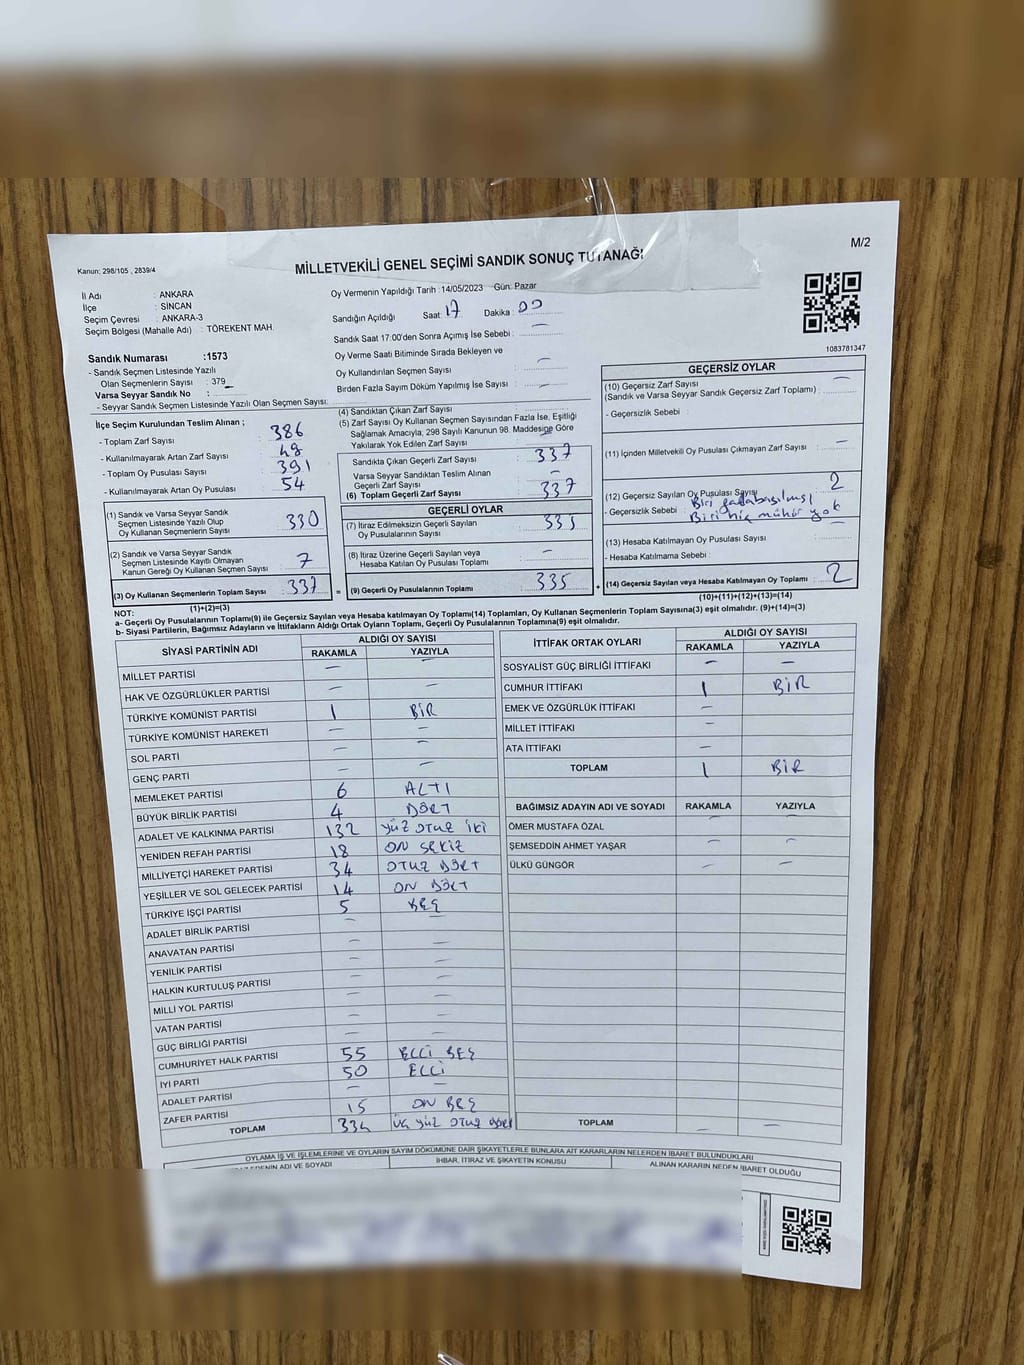 M/2
Kanun: 298/105 , 2839/4
MİLLETVEKİLİ GENEL SEÇİMİ SANDIK SONUÇ TUTANAĞI
İl Adı : ANKARA
İlçe : SİNCAN
Seçim Çevresi : ANKARA-3
Seçim Bölgesi (Mahalle Adı) : TÖREKENT MAH.
Sandık Numarası :1573
- Sandık Seçmen Listesinde Yazılı
Olan Seçmenlerin Sayısı : 379
Varsa Seyyar Sandık No :
- Seyyar Sandık Seçmen Listesinde Yazılı Olan Seçmen Sayısı:
Oy Vermenin Yapıldığı Tarih :14/05/2023 Gün: Pazar
Sandığın Açıldığı Saat : 17 Dakika : 00
Sandık Saat 17:00'den Sonra Açımış İse Sebebi : —
Oy Verme Saati Bitiminde Sırada Bekleyen ve
Oy Kullandırılan Seçmen Sayısı : —
Birden Fazla Sayım Döküm Yapılmış İse Sayısı : —
1083781347
İlçe Seçim Kurulundan Teslim Alınan ;
- Toplam Zarf Sayısı : 386
- Kullanılmayarak Artan Zarf Sayısı : 49
- Toplam Oy Pusulası Sayısı : 391
- Kullanılmayarak Artan Oy Pusulası : 54
(1) Sandık ve Varsa Seyyar Sandık
Seçmen Listesinde Yazılı Olup
Oy Kullanan Seçmenlerin Sayısı : 330
(2) Sandık ve Varsa Seyyar Sandık
Seçmen Listesinde Kayıtlı Olmayan
Kanun Gereği Oy Kullanan Seçmen Sayısı : 7
(3) Oy Kullanan Seçmenlerin Toplam Sayısı : 337
(1)+(2)=(3)
(4) Sandıktan Çıkan Zarf Sayısı :
(5) Zarf Sayısı Oy Kullanan Seçmen Sayısından Fazla İse, Eşitliği
Sağlamak Amacıyla, 298 Sayılı Kanunun 98. Maddesine Göre
Yakılarak Yok Edilen Zarf Sayısı : —
Sandıkta Çıkan Geçerli Zarf Sayısı : 337
Varsa Seyyar Sandıktan Teslim Alınan
Geçerli Zarf Sayısı : —
(6) Toplam Geçerli Zarf Sayısı : 337
GEÇERLİ OYLAR
(7) İtiraz Edilmeksizin Geçerli Sayılan
Oy Pusulalarının Sayısı : 335
(8) İtiraz Üzerine Geçerli Sayılan veya
Hesaba Katılan Oy Pusulası Toplamı : —
(9) Geçerli Oy Pusulalarının Toplamı : 335
GEÇERSİZ OYLAR
(10) Geçersiz Zarf Sayısı
(Sandık ve Varsa Seyyar Sandık Geçersiz Zarf Toplamı) : —
- Geçersizlik Sebebi :
(11) İçinden Milletvekili Oy Pusulası Çıkmayan Zarf Sayısı : —
(12) Geçersiz Sayılan Oy Pusulası Sayısı 2
- Geçersizlik Sebebi : Biri fazla basılmış
Biri hiç mühür yok
(13) Hesaba Katılmayan Oy Pusulası Sayısı : —
- Hesaba Katılmama Sebebi :
(14) Geçersiz Sayılan veya Hesaba Katılmayan Oy Toplamı : 2
(10)+(11)+(12)+(13)=(14)
NOT:
a- Geçerli Oy Pusulalarının Toplamı(9) ile Geçersiz Sayılan veya Hesaba katılmayan Oy Toplamı(14) Toplamları, Oy Kullanan Seçmenlerin Toplam Sayısına(3) eşit olmalıdır. (9)+(14)=(3)
b- Siyasi Partilerin, Bağımsız Adayların ve İttifakların Aldığı Ortak Oyların Toplamı, Geçerli Oy Pusulalarının Toplamına(9) eşit olmalıdır.
SİYASİ PARTİNİN ADI ALDIĞI OY SAYISI
RAKAMLA YAZIYLA
MİLLET PARTİSİ — —
HAK VE ÖZGÜRLÜKLER PARTİSİ — —
TÜRKİYE KOMÜNİST PARTİSİ 1 BİR
TÜRKİYE KOMÜNİST HAREKETİ — —
SOL PARTİ — —
GENÇ PARTİ — —
MEMLEKET PARTİSİ 6 ALTI
BÜYÜK BİRLİK PARTİSİ 4 DÖRT
ADALET VE KALKINMA PARTİSİ 132 YÜZ OTUZ İKİ
YENİDEN REFAH PARTİSİ 18 ON SEKİZ
MİLLİYETÇİ HAREKET PARTİSİ 34 OTUZ DÖRT
YEŞİLLER VE SOL GELECEK PARTİSİ 14 ON DÖRT
TÜRKİYE İŞÇİ PARTİSİ 5 BEŞ
ADALET BİRLİK PARTİSİ — —
ANAVATAN PARTİSİ — —
YENİLİK PARTİSİ — —
HALKIN KURTULUŞ PARTİSİ — —
MİLLİ YOL PARTİSİ — —
VATAN PARTİSİ — —
GÜÇ BİRLİĞİ PARTİSİ — —
CUMHURİYET HALK PARTİSİ 55 ELLİ BEŞ
İYİ PARTİ 50 ELLİ
ADALET PARTİSİ — —
ZAFER PARTİSİ 15 ON BEŞ
TOPLAM 334 ÜÇ YÜZ OTUZ DÖRT
İTTİFAK ORTAK OYLARI ALDIĞI OY SAYISI
RAKAMLA YAZIYLA
SOSYALİST GÜÇ BİRLİĞİ İTTİFAKI — —
CUMHUR İTTİFAKI 1 BİR
EMEK VE ÖZGÜRLÜK İTTİFAKI —
MİLLET İTTİFAKI —
ATA İTTİFAKI —
TOPLAM 1 BİR
BAĞIMSIZ ADAYIN ADI VE SOYADI RAKAMLA YAZIYLA
ÖMER MUSTAFA ÖZAL — —
ŞEMSEDDİN AHMET YAŞAR — —
ÜLKÜ GÜNGÖR — —
TOPLAM — —
OYLAMA İŞ VE İŞLEMLERİNE VE OYLARIN SAYIM DÖKÜMÜNE DAİR ŞİKAYETLERLE BUNLARA AİT KARARLARIN NELERDEN İBARET BULUNDUKLARI
ADI VE SOYADI İHBAR, İTİRAZ VE ŞİKAYETİN KONUSU ALINAN KARARIN NEDEN İBARET OLDUĞU